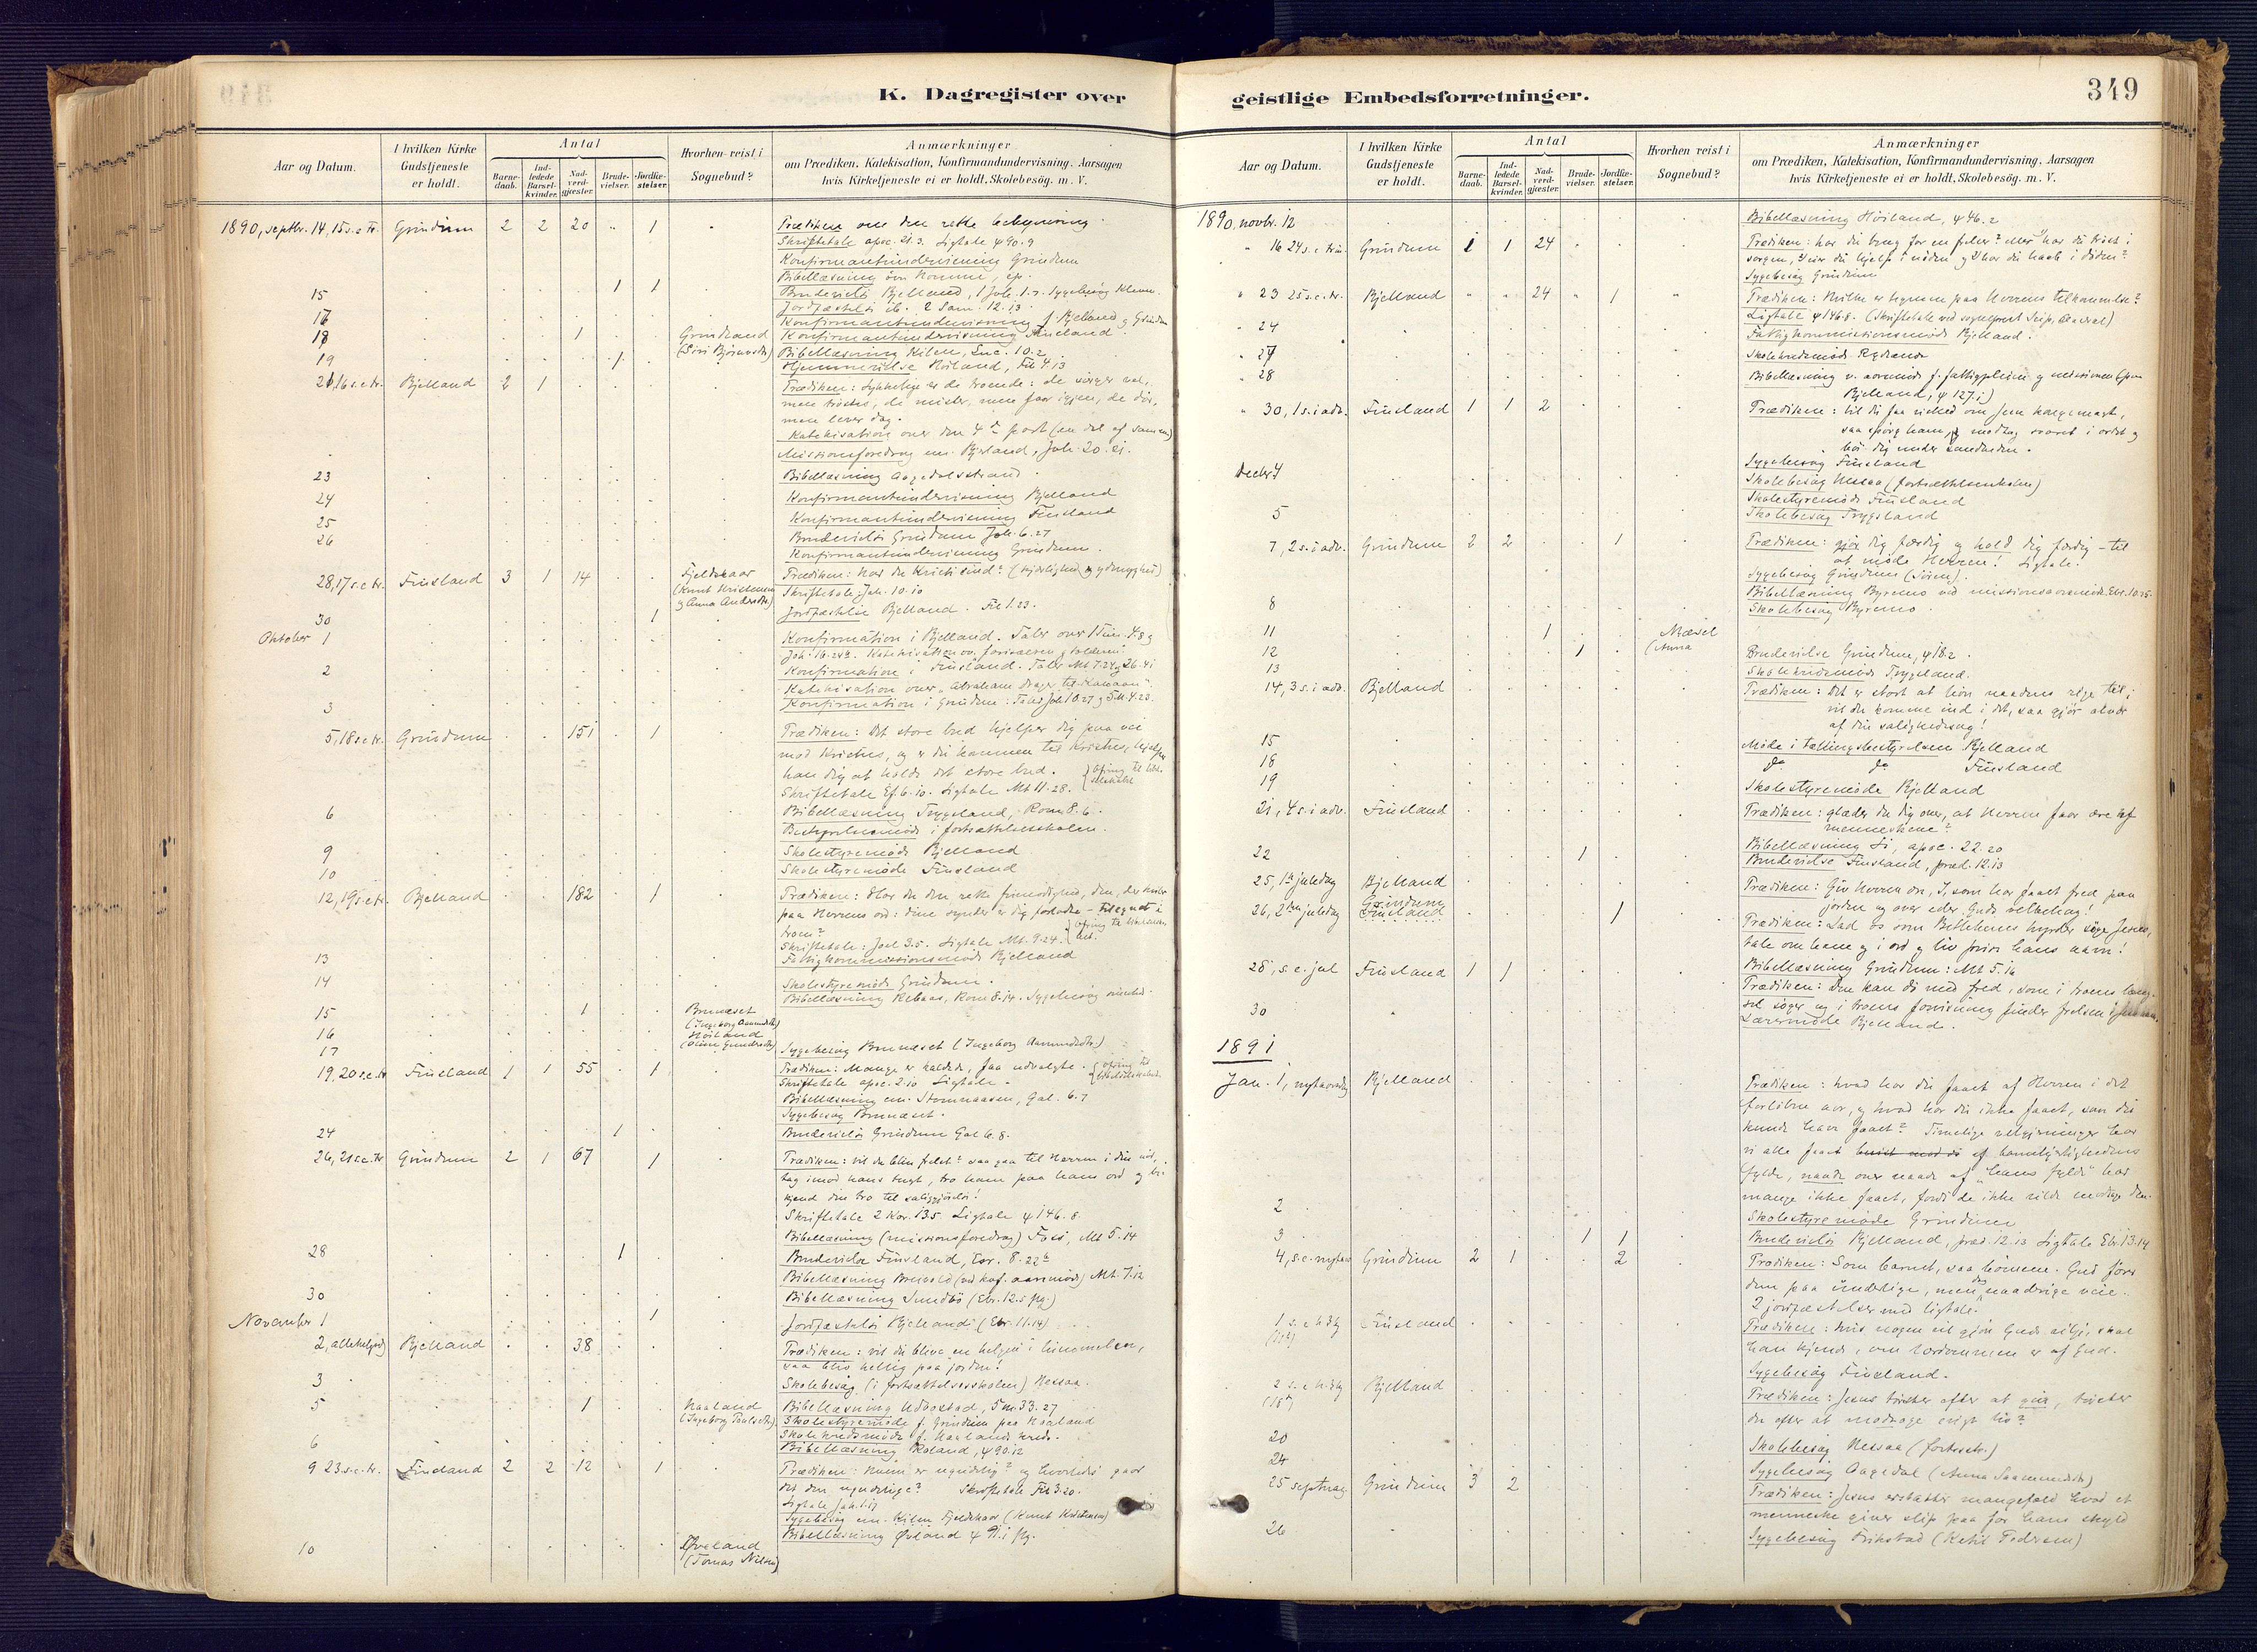 K. Dagregister over
Aar og Datum.
I hvilken Kirke Gudstjeneste er holdt.
Antal
Barne-daab.
Ind-ledede Barsel-kvinder.
Nad-verd-gjester.
Brude-vielser.
Jordfæ-stelser.
Hvorhen reist i Sognebud?
Anmærkninger
om Prædiken, Katekisation, Konfirmandundervisning, Aarsagen
hvis Kirketjeneste ei er holdt, Skolebesög. m. V.
1890, septbr. 14, 15 s. e. Tr. Grindum 2 2 20 1 Prædiken om den rette bekymring.
Skriftetale apoc. 21.3. Ligtale ψ 90.9
Konfirmantundervisning Grindum
Bibellæsning
15 1 1 Brudevielse Bjelland, 1 Joh. Sygebesøg
Jordfæstelse 2 Sam. 12.13
17 Konfirmantundervisning f. Bjelland og Grindum
18 1 Konfirmantundervisning Finsland
Bibellæsning Kilen, Luc. 10.2
19 1 Hjemmevielse Høiland
21, 16 s. e. tr. Bjelland 2 1 Prædiken: Lykkelige er de troende: de sørger vel,
men trøstes, de mister, men faar igjen, de dør,
men lever dog.
Katekisation over den 4de part
Missionsforedrag em. Bjelland, Joh. 20.21.
23 Bibellæsning Aagedalsstrand
24 Konfirmantundervisning Bjelland
25 Konfirmantundervisning Finsland
26 Brudevielse Grindum Joh. 6.27
Konfirmantundervisning Grindum.
28, 17 s. e. tr. Finsland 3 1 14 Fjeldskaar Prædiken: Har du Kristi sind? (kjærlighed og ydmyghed)
(Knut Kristensen og Anna Andersdtr.) Skriftetale Joh. 10.10
30 1 Jordfæstelse Bjelland. Fil 1.23.
Oktober 1 Konfirmation i Bjelland. Taler over 1 Tim. 4.8 og
Joh. 16. Katekisation ov. farisæeren og tolderen.
2 Konfirmation i Finsland. Taler Mt 7.24 og 26.41
Katekisation over "Abraham drager til Kanaan".
3 Konfirmation i Grindum
5, 18 s. e. tr. Grindum 151 1 Prædiken: Det store bud hjelper dig paa vei
mod Kristus, og er du kommen til Kristus, hjelper
han dig at holde det store bud.
Skriftetale Ef. 6.10. Ligtale Mt 11.28.
6 Bibellæsning Tryggland, Rom 8.6.
Bestyrelsesmøde i fortsættelsesskolen.
9 Skolestyremøde Bjelland
10 Skolestyremøde Finsland
12, 19 s. e. tr. Bjelland 182 1 Prædiken: Har du den rette frimodighed, den, der hviler
paa Herrens ord: dine synder er dig forladte - tilegnet i
troen?
Skriftetale: Joel 3.5. Ligtale Mt. 9.24.
13 Fattigkommissionsmøde Bjelland
14 Skolestyremøde Grindum.
Bibellæsning Rebaas, Rom 8.14. Sygebesøg
15 1 Brunæset
(Ingeborg Aamundsdtr)
16 Høiland
17 Sygebesøg Brunæset (Ingeborg Aamundsdtr.)
19, 20 s. e. tr. Finsland 1 1 55 1 Prædiken: Mange er kaldede, faa udvalgte.
Skriftetale apoc. 2.10 Ligtale.
Bibellæsning em. Stommaasen, Gal. 6.7
Sygebesøg Brunæset.
24 1 Brudevielse Grindum Gal 6.8.
26, 21 s. e. tr Grindum 2 1 67 1 Prædiken: vil du blive frelst? saa gaa til Herren i din nød,
tag imod hans tugt, tro ham paa hans ord og be-
kjend din tro til saliggjørelse!
Skriftetale 2 Kor. 13.5. Ligtale ψ 146.8.
Bibellæsning (missionsforedrag) Mt 5.14
28 1 Brudevielse Finsland
Bibellæsning Mt. 7.12
30 Bibellæsning Sundbø (Ebr. 12.5 flg.)
November 1 1 Jordfæstelse Bjelland (Ebr. 11.14)
2, allehelgensd. Bjelland 38 Prædiken: vil du blive en helgen i himmelen,
saa bliv hellig paa jorden!
3 Skolebesøg (i fortsættelsesskolen) Nessaa.
5 1 Haaland Bibellæsning Udbostad, 5 M. 33.27
(Ingeborg Paulsdtr.) Skolestyremøde f. Grindum paa Haaland
Skolekredsmøde f. Haalands kreds.
6 Bibellæsning ψ 90.12
9 23. s. e. tr. Finsland 2 2 12 1 Prædiken: Hvem er ugudelig? og hvorledes gaar
det den ugudelige? Skriftetale Fil 3.20.
Ligtale
Sygebesøg em. Kilen Fjeldskaar (Knut Kristensen)
Bibellæsning Øvland
10 Øvland
(Tomas Nilsen)
geistlige Embedsforretninger.
349
Aar og Datum.
I hvilken Kirke Gudstjeneste er holdt.
Antal
Barne-daab.
Ind-ledede Barsel-kvinder.
Nad-verd-gjester.
Brude-vielser.
Jordfæ-stelser.
Hvorhen reist i Sognebud?
Anmærkninger
om Prædiken, Katekisation, Konfirmandundervisning, Aarsagen
hvis Kirketjeneste ei er holdt, Skolebesög. m. V.
1890, novbr. 12 Bibellæsning Höiland, ψ 46.2
" 16 24 s. e. trin. Grindum 1 1 24 Prædiken: har du brug for en frelser? eller har du trøst i
sorgen, eier du hjelp i nøden og har du haab i døden?
Sygebesøg Grindum
" 23 25 s. e. tr. Bjelland 24 1 Prædiken: Hvilke er tegnene paa Herrens tilkommelse?
Ligtale ψ 146.8.
" 24 Fattigkommissionsmøde Bjelland.
" 27 Skolekredsmøde
" 28 Bibellæsning v. aarsmøde f. fattigpleien og missionen
Bjelland, ψ 127.1)
" 30, 1 s. i adv. Finsland 1 1 2 Prædiken: vil du faa visshed om Jesu kongemagt,
saa spørg ham, modtag svaret i ordet og
bøi dig under sandheden.
Sygebesøg Finsland
Decbr 4 Skolebesøg Nessaa (fortsættelsesskolen)
Skolestyremøde Finsland
5 Skolebesøg Trygsland
7, 2 s. i adv. Grindum 2 2 1 Prædiken: gjør dig færdig og hold dig færdig - til
at møde Herren! Ligtale.
Sygebesøg Grindum
Bibellæsning Byremo ved missionsaarsmøde Ebr. 10.25.
8 Skolebesøg Byremo.
11 1 Mæsel
(Anna
12 1 Brudevielse Grindum, ψ 18.2.
13 Skolekredsmøde Trygsland.
14, 3 s. i adv. Bjelland Prædiken: Det er stort at høre naadens rige til;
vil du komme ind i det, saa gjør alvor
af din salighedssag!
15 Møde i tællingsbestyrelsen Bjelland
18 do do Finsland
19 Skolestyremøde Bjelland
21, 4 s. i adv. Finsland Prædiken: glæder du dig over, at Herren faar ære af
menneskene?
Bibellæsning Li, apoc. 22.20
22 1 Brudevielse Finsland, præd. 12.13
25, 1ste juledag Bjelland Prædiken: Giv Herren ære, I, som har faaet fred paa
Grindum jorden og over eder Guds velbehag!
26, 2den juledag Finsland 1 Prædiken: Lad os som Betlehems hyrder søge Jesus,
tale om ham og i ord og liv prise hans navn!
Bibellæsning Grindum: Mt 5.16
28, s. e. jul Finsland 1 1 Prædiken: Den kan dø med fred, som i troens læng-
sel søger og i troens forvisning finder frelsen i
30 Lærermøde Bjelland.
1891
Jan. 1, nytaarsdag Bjelland Prædiken: hvad har du faaet af Herren i det
forløbne aar, og hvad har du ikke faaet, som du
kunde have faaet? Timelige velgjerninger har
vi alle faaet af barmhjertighedens
fylde, naade over naade af "hans fylde" har
mange ikke faaet, fordi de ikke vilde modtage den.
2 Skolestyremøde Grindum
3 1 1 Brudevielse Bjelland, præd. 12.13 Ligtale Ebr. 13.14
4, s. e. nytaar Grindum 2 1 2 Prædiken: Som barnet, saa børnene. Gud fører
dem paa underlige, men naaderige veie.
2 jordfæstelser med ligtale.
1 s. e. h3k Finsland Prædiken: hvis nogen vil gjøre Guds vilje, skal
(11te) han kjende, om lærdommen er af Gud.
Sygebesøg Finsland.
2 s. e. h3k Bjelland Prædiken: Jesus tørster efter at give, tørster
(18de) du efter at modtage evigt liv?
20 Skolebesøg Nessaa (fortsstr.)
24 Sygebesøg Aagedal (Anna Saamundsdtr)
25 septuag. Grindum 3 2 Prædiken: Jesus erstatter mangefold hvad et
menneske giver slip paa for hans skyld
26 Sygebesøg Frikstad (Ketil Pedersen)